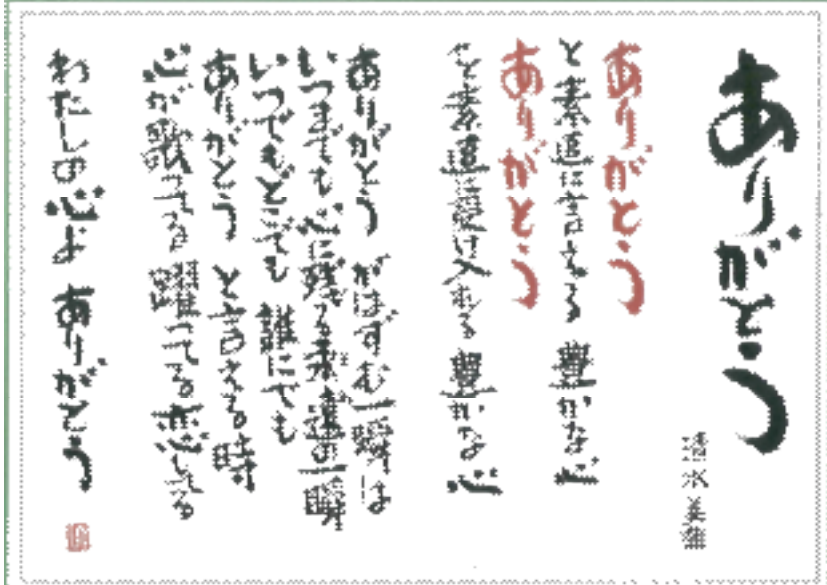 ありがとう
清水英雄
ありがとう
と素直に言える 豊かな心
ありがとう
と素直に受け入れる 豊かな心
ありがとう がはずむ一瞬は
いつまでも心に残る素敵な一瞬
いつでもどこでも 誰にでも
ありがとう と言える時
心が歌ってる 躍ってる 恋してる
わたしの心よ ありがとう